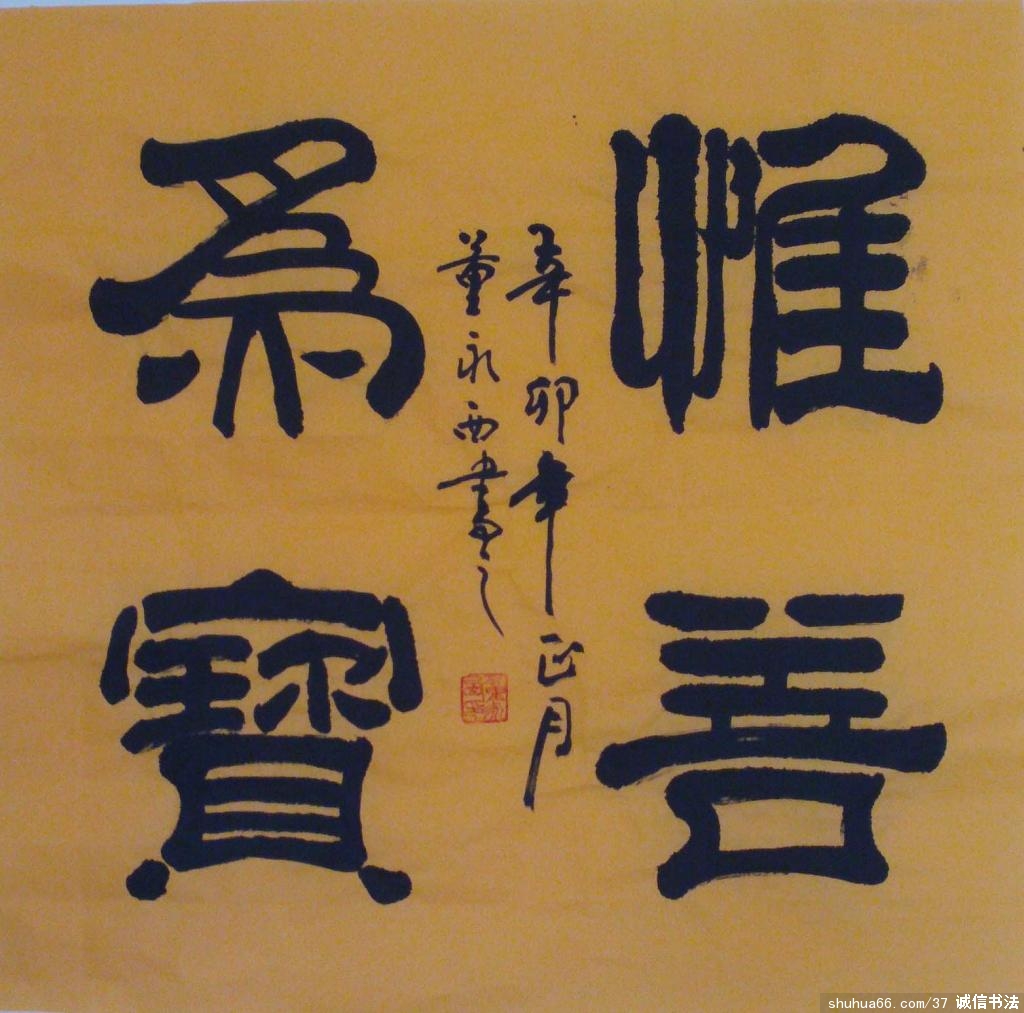 惟善
為寶
辛卯年正月
董永西書之
shuhua66.com/37 诚信书法